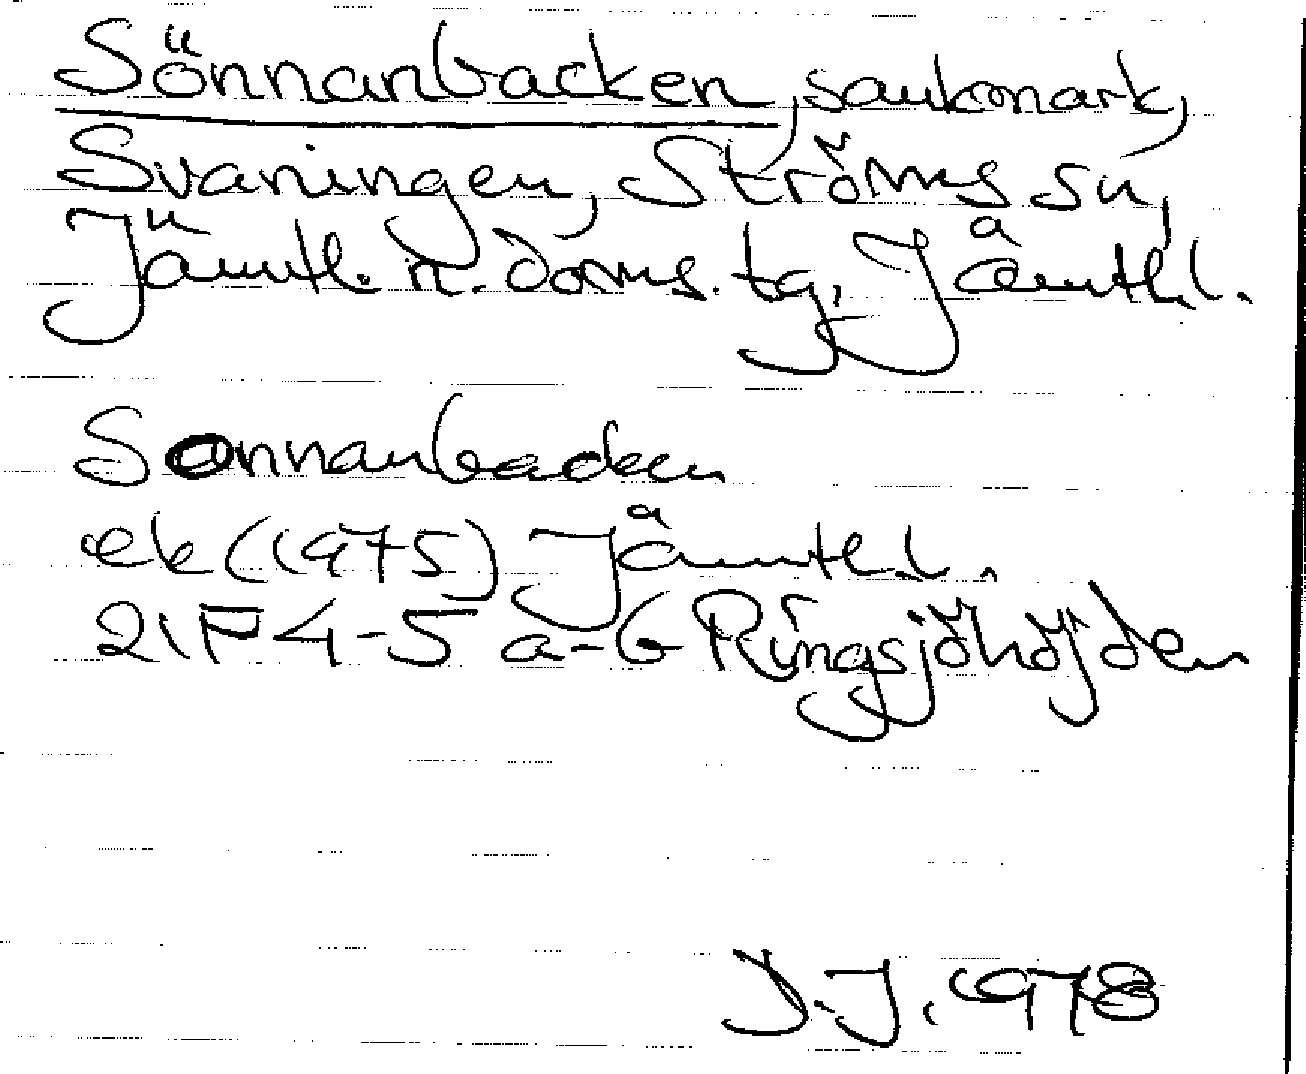 Sönnanbäcken, sankmark,
Svaningen, Ströms sn,
Jämtl. n. doms. tg, Jämtl. l.
Sonnanbäcken
ek (1975) Jämtl. l.
21F 4-5 a-b Ringsjöhöjden
D.J. 1978